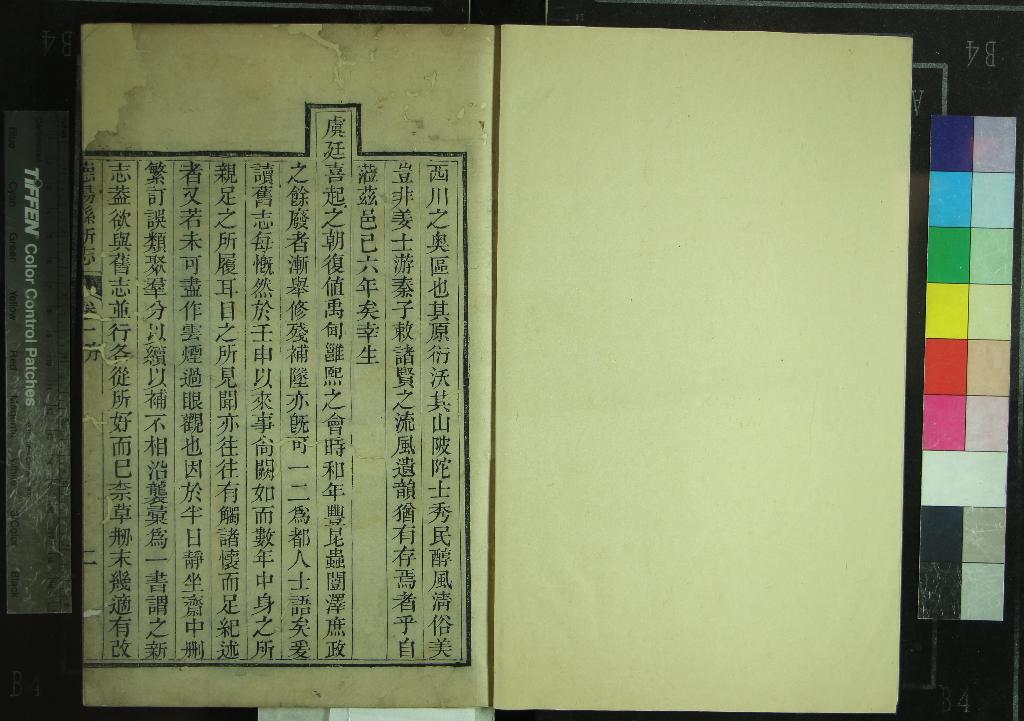 西川之奥區也其原衍沃其山陂陀士秀民醇風清俗美
豈非姜士游秦子敕諸賢之流風遺韻猶有存焉者乎自
蒞茲邑已六年矣幸生
虞廷喜起之朝復值禹甸雝熙之會時和年豐昆蟲闓澤庶政
之餘廢者漸舉修殘補墜亦旣可一二爲都人士語矣爰
讀舊志每慨然於壬申以來事尙闕如而數年中身之所
親足之所履耳目之所見聞亦往往有觸諸懷而足紀述
者又若未可盡作雲煙過眼觀也因於半日靜坐齋中刪
繁訂誤類聚羣分以續以補不相沿襲彙爲一書謂之新
志葢欲與舊志並行各從所好而已柰草刱未幾適有改
縣新志 二
TIFFEN Color Control Patches
Blue Cyan Green Yellow Red Magenta White 3/Color Black
B4
B4
B4
B4
A